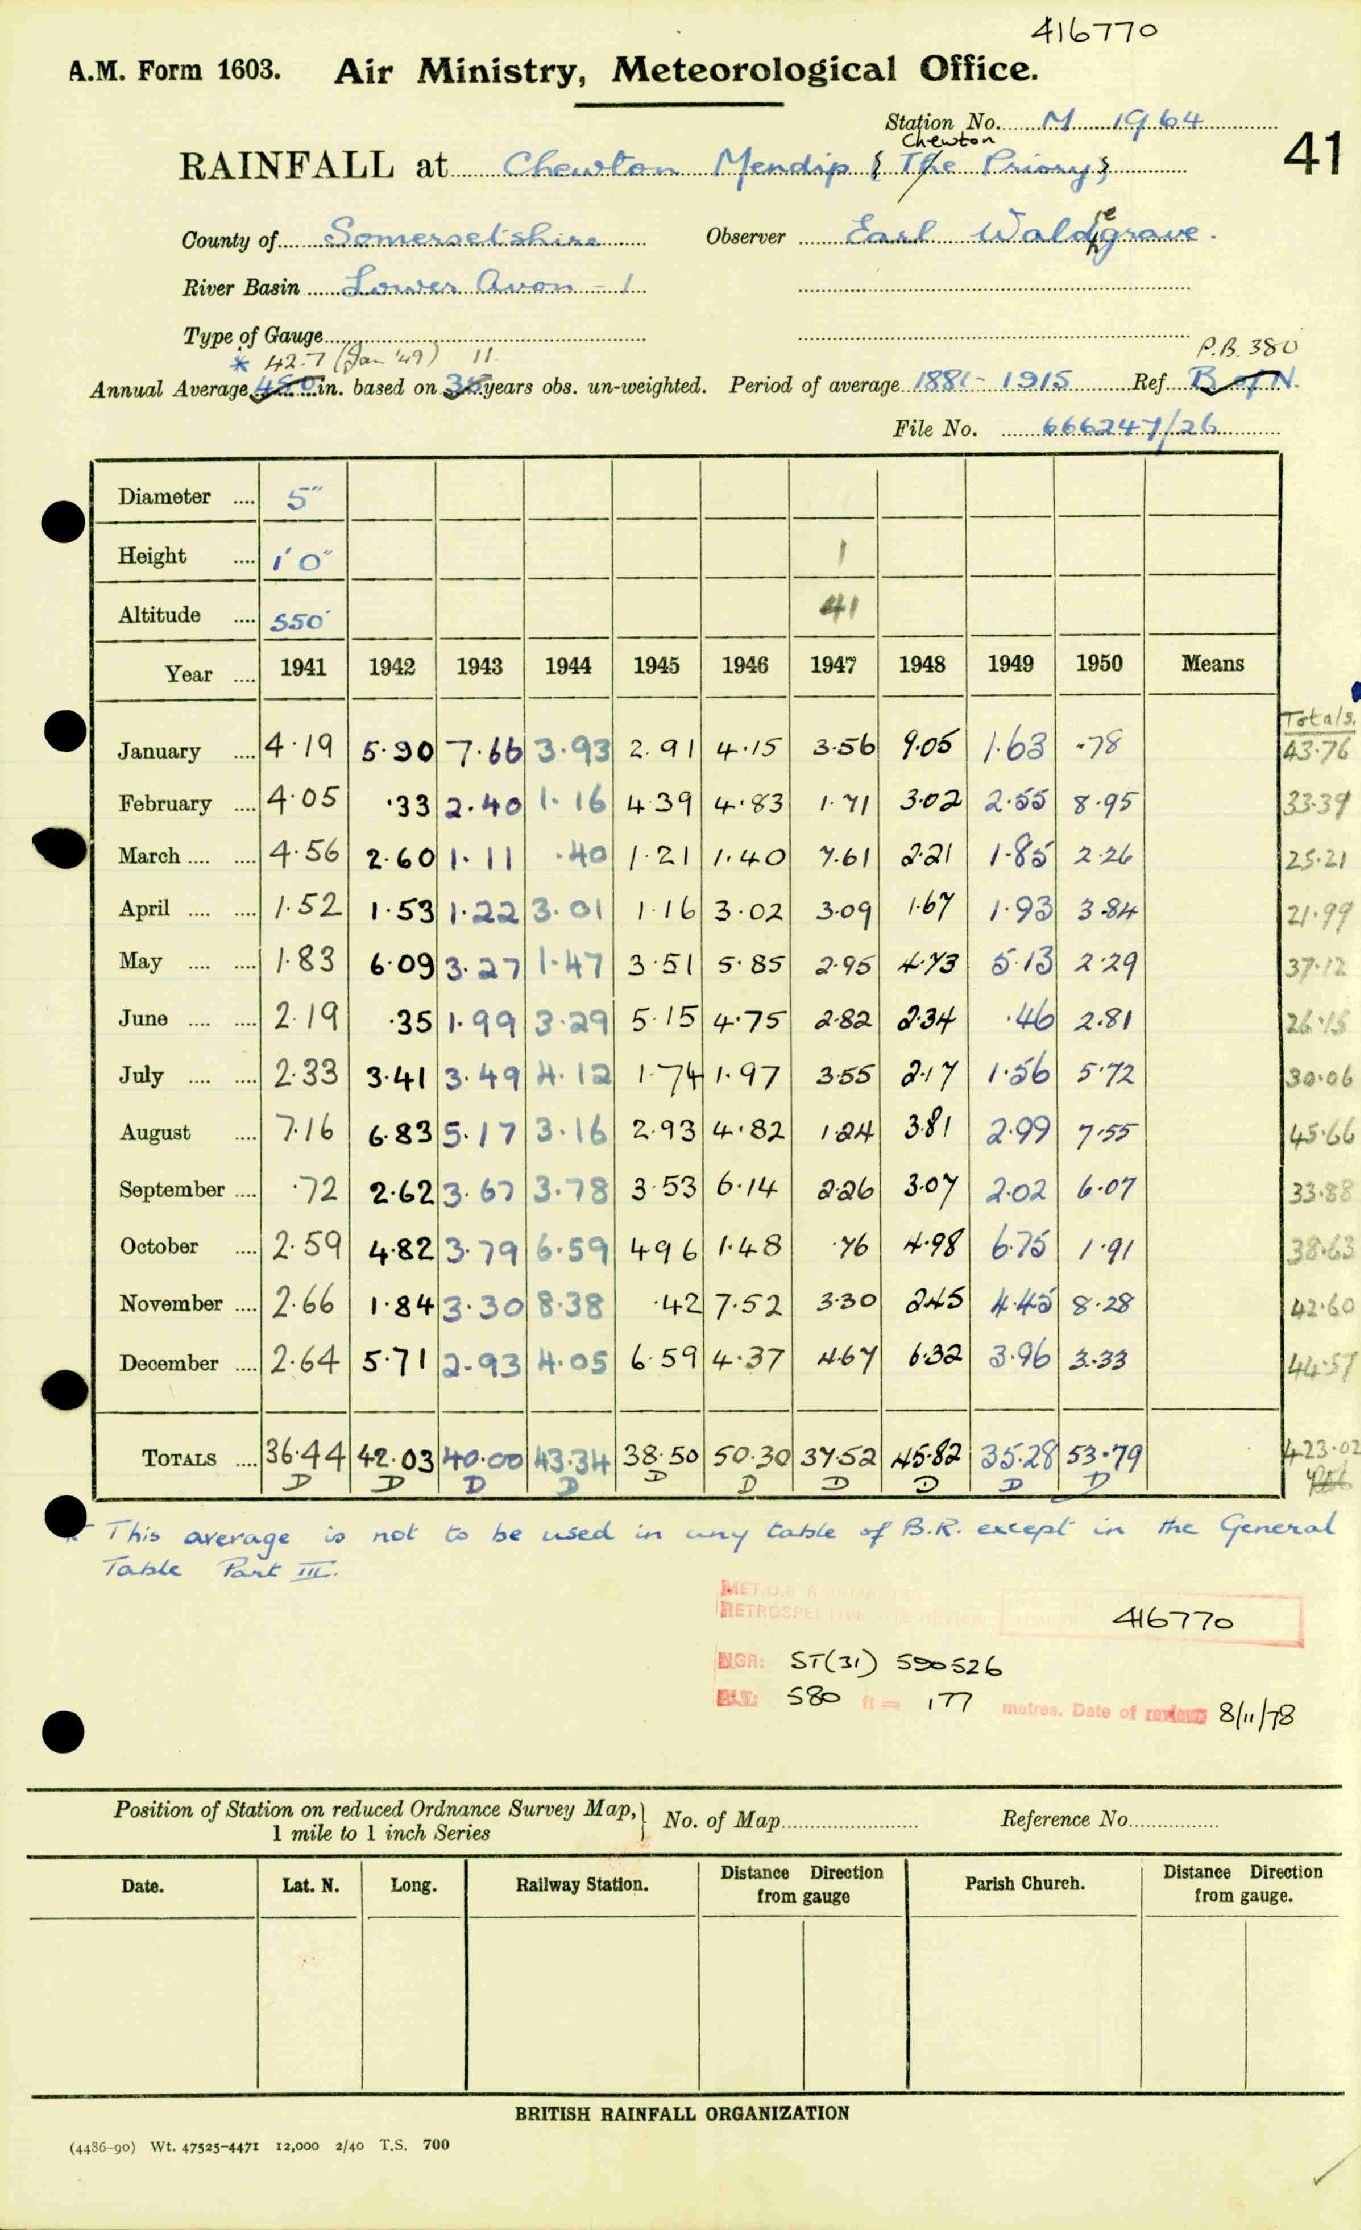 416770
A.M. Form 1603. Air Ministry, Meteorological Office.
Station No. M 1964
Chewton
41
RAINFALL at Chewton Mendip { The Priory }
County of Somersetshire Observer Earl Waldegrave.
River Basin Lower Avon - 1
Type of Gauge
* 42.7 (Jan '49) 11 P.B. 380
Annual Average 45.0 in. based on 35 years obs. un-weighted. Period of average 1881-1915 Ref. B of N.
File No. 666247/26
Diameter .... 5"
Height .... 1' 0" 1
Altitude .... 550' 41
Year .... 1941 1942 1943 1944 1945 1946 1947 1948 1949 1950 Means
Totals.
January .... 4.19 5.90 7.66 3.93 2.91 4.15 3.56 9.05 1.63 .78 43.76
February .... 4.05 .33 2.40 1.16 4.39 4.83 1.71 3.02 2.55 8.95 33.39
March .... .... 4.56 2.60 1.11 .40 1.21 1.40 7.61 2.21 1.85 2.26 25.21
April .... .... 1.52 1.53 1.22 3.01 1.16 3.02 3.09 1.67 1.93 3.84 21.99
May .... .... 1.83 6.09 3.27 1.47 3.51 5.85 2.95 4.73 5.13 2.29 37.12
June .... .... 2.19 .35 1.99 3.29 5.15 4.75 2.82 2.34 .46 2.81 26.15
July .... .... 2.33 3.41 3.49 4.12 1.74 1.97 3.55 2.17 1.56 5.72 30.06
August .... 7.16 6.83 5.17 3.16 2.93 4.82 1.24 3.81 2.99 7.55 45.66
September .... .72 2.62 3.67 3.78 3.53 6.14 2.26 3.07 2.02 6.07 33.88
October .... 2.59 4.82 3.79 6.59 4.96 1.48 .76 4.98 6.75 1.91 38.63
November .... 2.66 1.84 3.30 8.38 .42 7.52 3.30 2.45 4.45 8.28 42.60
December .... 2.64 5.71 2.93 4.05 6.59 4.37 4.67 6.32 3.96 3.33 44.57
TOTALS .... 36.44 42.03 40.00 43.34 38.50 50.30 37.52 45.82 35.28 53.79 423.02
D D D D D D D D D D
* This average is not to be used in any table of B.R. except in the General
Table Part III.
MET.O.8
RETROSPECTIVE REVIEW 416770
NGR: ST(31) 590526
ALT: 580 ft = 177 metres. Date of review 8/11/78
Position of Station on reduced Ordnance Survey Map, 1 mile to 1 inch Series } No. of Map Reference No.
Date. Lat. N. Long. Railway Station. Distance Direction from gauge Parish Church. Distance Direction from gauge.
BRITISH RAINFALL ORGANIZATION
(4486-90) Wt. 47525-4471 12,000 2/40 T.S. 700